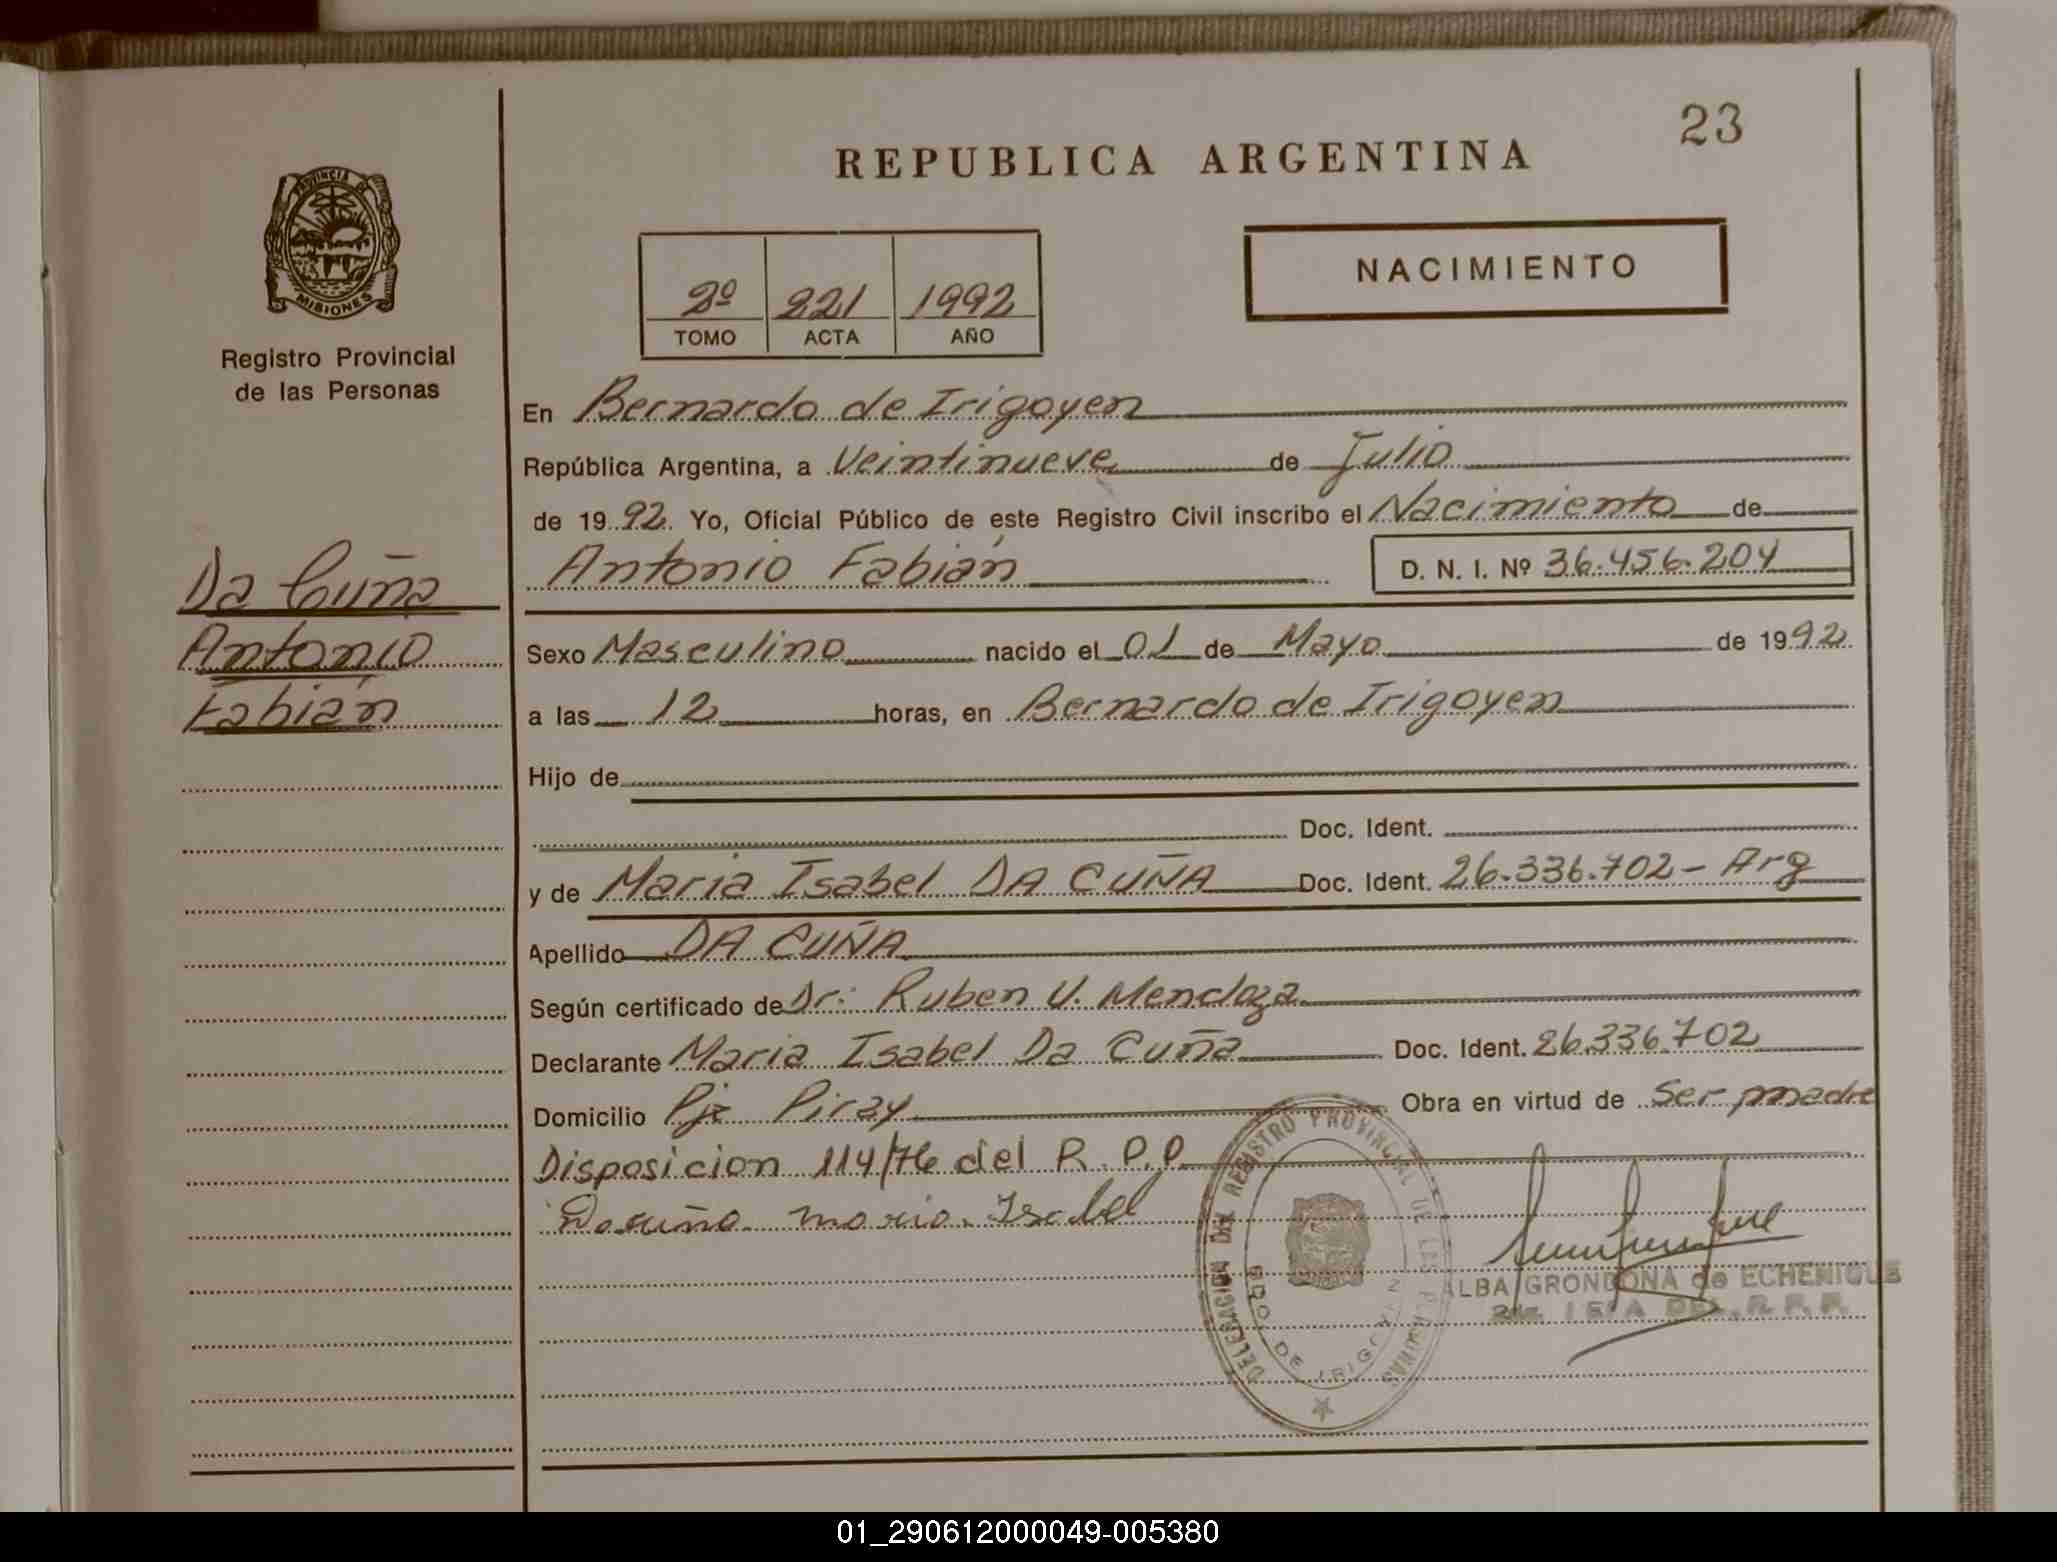 23
REPUBLICA ARGENTINA
PROVINCIA DE
MISIONES
Registro Provincial
de las Personas
NACIMIENTO
2º 221 1992
TOMO ACTA AÑO
En Bernardo de Irigoyen
República Argentina, a Veintinueve de Julio
de 1992. Yo, Oficial Público de este Registro Civil inscribo el Nacimiento de
Antonio Fabián D. N. I. Nº 36.456.204
Da Cuña
Antonio
Fabián
Sexo Masculino nacido el 01 de Mayo de 1992
a las 12 horas, en Bernardo de Irigoyen
Hijo de
Doc. Ident.
y de Maria Isabel DA CUÑA Doc. Ident. 26.336.702 - Arg
Apellido DA CUÑA
Según certificado de Dr: Ruben U. Mendoza
Declarante Maria Isabel Da Cuña Doc. Ident. 26.336.702
Domicilio Pje Piray Obra en virtud de Ser madre
Disposicion 114/76 del R.P.P.
Dacuña maria Isabel
DELEGACION DEL REGISTRO PROVINCIAL DE LAS PERSONAS
BDO. DE IRIGOYEN
ALBA GRONDONA de ECHENIQUE
DEL R.P.P.
01_290612000049-005380